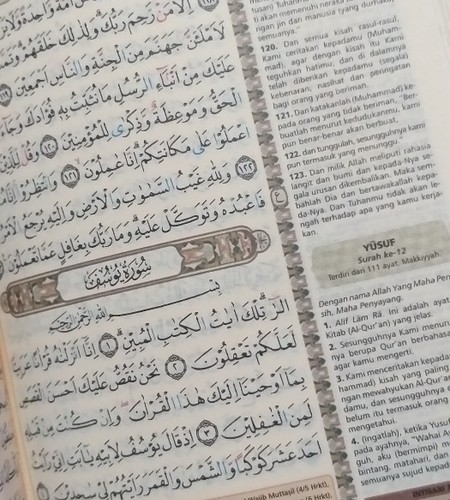 إِلَّا مَنْ رَحِمَ رَبُّكَ ۚ وَلِذَٰلِكَ خَلَقَهُمْ ۗ
لَأَمْلَأَنَّ جَهَنَّمَ مِنَ الْجِنَّةِ وَالنَّاسِ أَجْمَعِينَ
عَلَيْكَ مِنْ أَنْبَاءِ الرُّسُلِ مَا نُثَبِّتُ بِهِ فُؤَادَكَ ۚ وَجَاءَ
الْحَقُّ وَمَوْعِظَةٌ وَذِكْرَىٰ لِلْمُؤْمِنِينَ ﴿١٢٠﴾ وَقُلْ لِلَّذِينَ
اعْمَلُوا عَلَىٰ مَكَانَتِكُمْ ۗ إِنَّا عَامِلُونَ ﴿١٢١﴾ وَانْتَظِرُوا إِنَّا
﴿١٢٢﴾ وَلِلَّهِ غَيْبُ السَّمَاوَاتِ وَالْأَرْضِ وَإِلَيْهِ يُرْجَعُ الْأَمْرُ
فَاعْبُدْهُ وَتَوَكَّلْ عَلَيْهِ ۗ وَمَا رَبُّكَ بِغَافِلٍ عَمَّا تَعْمَلُونَ
سُورَةُ يُوسُفَ
بِسْمِ اللَّهِ الرَّحْمَٰنِ الرَّحِيمِ
الر ۚ تِلْكَ آيَاتُ الْكِتَابِ الْمُبِينِ ﴿١﴾ إِنَّا أَنْزَلْنَاهُ قُرْآنًا عَرَبِيًّا
لَعَلَّكُمْ تَعْقِلُونَ ﴿٢﴾ نَحْنُ نَقُصُّ عَلَيْكَ أَحْسَنَ الْقَصَصِ
بِمَا أَوْحَيْنَا إِلَيْكَ هَٰذَا الْقُرْآنَ ۖ وَإِنْ كُنْتَ مِنْ قَبْلِهِ
لَمِنَ الْغَافِلِينَ ﴿٣﴾ إِذْ قَالَ يُوسُفُ لِأَبِيهِ يَا أَبَتِ إِنِّي رَأَيْتُ
أَحَدَ عَشَرَ كَوْكَبًا وَالشَّمْسَ وَالْقَمَرَ رَأَيْتُهُمْ لِي سَاجِدِينَ
Wajib Muttaṣil (4/5 Hrkt),
tusan) Tuhanmu
ti akan memenuhi neraka
ngan jin dan manusia (yang durhaka)
semuanya."
120. Dan semua kisah rasul-rasul,
Kami ceritakan kepadamu (Muham-
mad), agar dengan kisah itu Kami
teguhkan hatimu; dan di dalamnya
telah diberikan kepadamu (segala)
kebenaran, nasihat dan peringatan
bagi orang yang beriman.
121. Dan katakanlah (Muhammad) ke-
pada orang yang tidak beriman, "Ber-
buatlah menurut kedudukanmu, kami
pun benar-benar akan berbuat,
122. dan tunggulah, sesungguhnya kami
pun termasuk yang menunggu."
123. Dan milik Allah meliputi rahasia
langit dan bumi dan kepada-Nya se-
gala urusan dikembalikan. Maka sem-
bahlah Dia dan bertawakallah kepa-
da-Nya. Dan Tuhanmu tidak akan le-
ngah terhadap apa yang kamu kerja-
kan.
YŪSUF
Surah ke-12
Terdiri dari 111 ayat. Makkiyyah.
Dengan nama Allah Yang Maha Penga-
sih, Maha Penyayang.
1. Alif Lām Rā. Ini adalah ayat-
Kitab (Al-Qur'an) yang jelas.
2. Sesungguhnya Kami menurun
nya berupa Qur'an berbahasa
agar kamu mengerti.
3. Kami menceritakan kepada
hammad) kisah yang paling
ngan mewahyukan Al-Qur'
damu, dan sesungguhnya
belum itu termasuk orang
mengetahui.
4. (Ingatlah), ketika Yusuf
pada ayahnya, "Wahai Ay
guh, aku (bermimpi) me
bintang, matahari, dan
semuanya sujud kepad